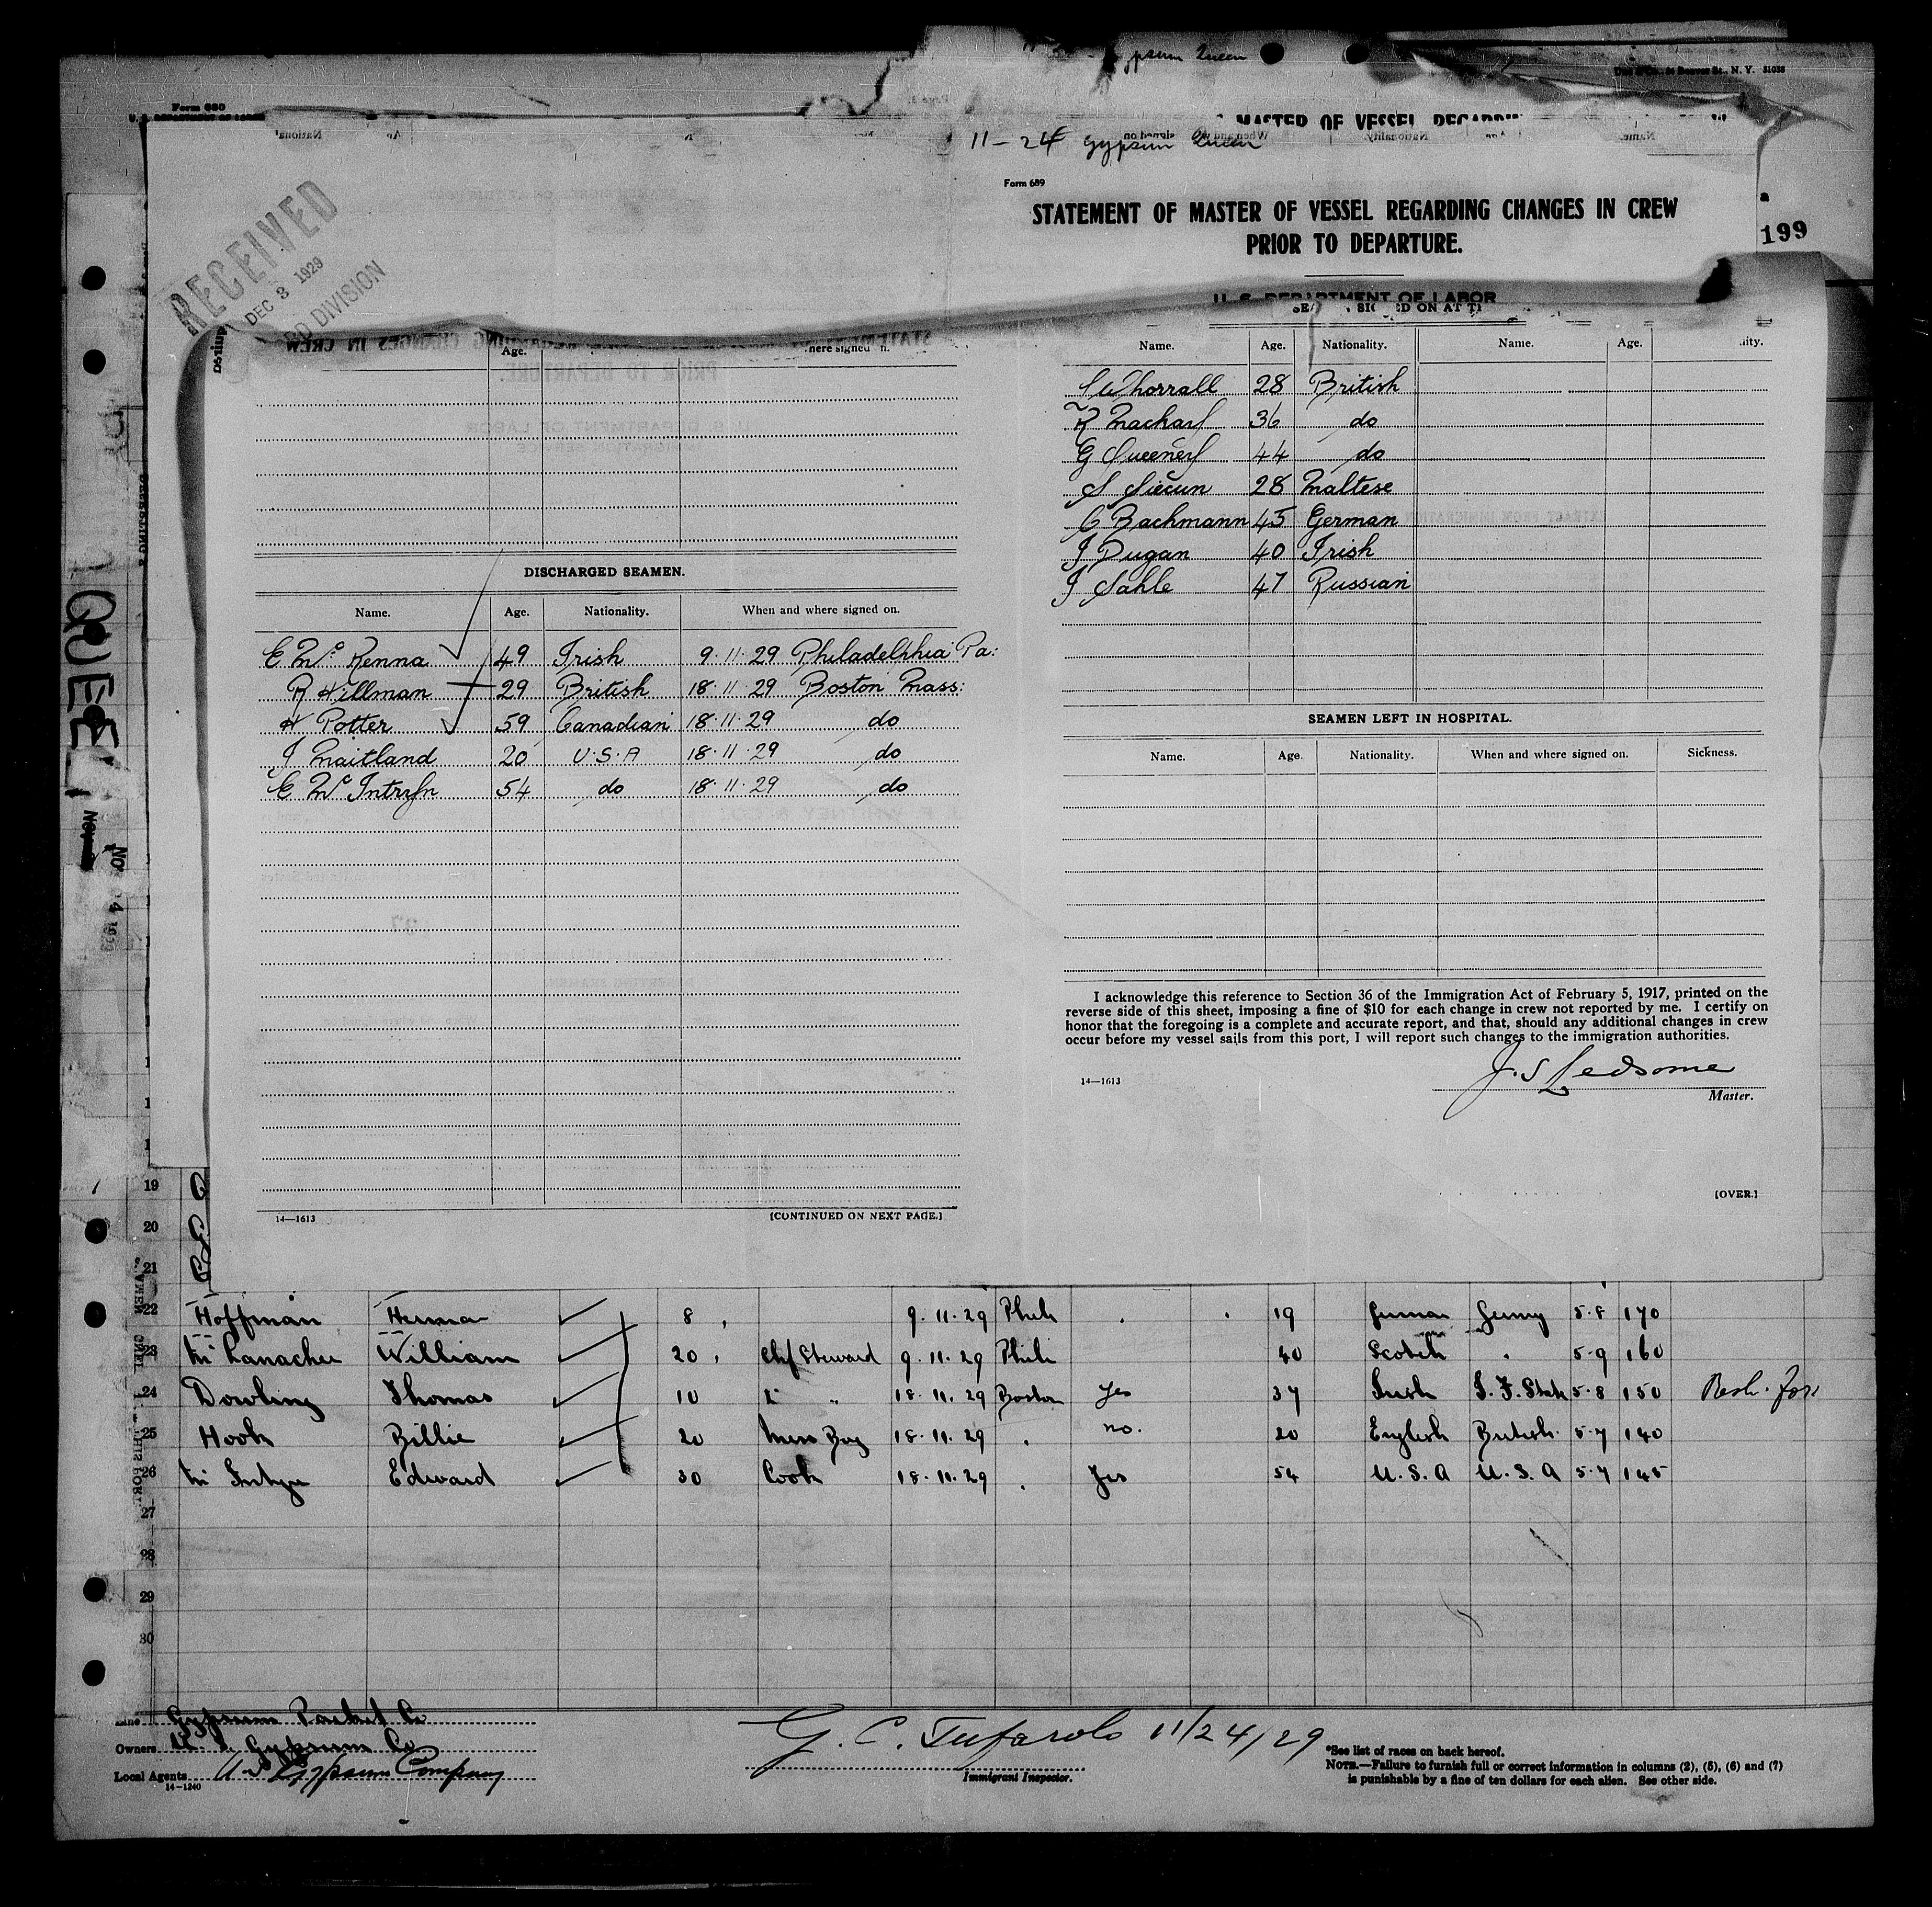 Gypsum Queen
N. Y. 31038
Form 680
U. S. DEPARTMENT OF LABOR
MASTER OF VESSEL
11-24 Gypsum Queen
Form 689
STATEMENT OF MASTER OF VESSEL REGARDING CHANGES IN CREW
PRIOR TO DEPARTURE.
199
RECEIVED
DEC 3 1929
DIVISION
U. S. DEPARTMENT OF LABOR
Age.
Name. Age. Nationality. Name. Age.
28 British
36 do
G Sweeney 44 do
28 Maltese
C Bachmann 45 German
J Dugan 40 Irish
J Sahle 47 Russian
QUEEN
DISCHARGED SEAMEN.
Name. Age. Nationality. When and where signed on.
E Mc Kenna 49 Irish 9.11.29 Philadelphia Pa.
R Hillman 29 British 18.11.29 Boston Mass.
H Potter 59 Canadian 18.11.29 do
J Maitland 20 U.S.A 18.11.29 do
E Mc Intryn 54 do 18.11.29 do
SEAMEN LEFT IN HOSPITAL.
Name. Age. Nationality. When and where signed on. Sickness.
I acknowledge this reference to Section 36 of the Immigration Act of February 5, 1917, printed on the
reverse side of this sheet, imposing a fine of $10 for each change in crew not reported by me. I certify on
honor that the foregoing is a complete and accurate report, and that, should any additional changes in crew
occur before my vessel sails from this port, I will report such changes to the immigration authorities.
J. S Ledsome
14—1613 Master.
[OVER.]
14—1613 [CONTINUED ON NEXT PAGE.]
19
20
21
22 Hoffman Herman 8 9.11.29 Phila 19 German Germy 5.8 170
23 William 20 Chf Steward 9.11.29 Phila 40 Scotch " 5.9 160
24 Dowling Thomas 10 2 " 18.11.29 Boston Yes 37 Irish I. F. State 5.8 150
25 Hook Billie 20 Mess Boy 18.11.29 " no. 20 English British 5.7 140
26 Mc Intyre Edward 30 Cook 18.11.29 " Yes 54 U.S.A U.S.A 5.7 145
27
28
29
30
Line Gypsum Packet Co
Owners U. S. Gypsum Co
Local Agents U.S. Gypsum Company
14—1240
G. C. Tufarolo 11/24/29
Immigrant Inspector.
*See list of races on back hereof.
NOTE.—Failure to furnish full or correct information in columns (2), (5), (6) and (7)
is punishable by a fine of ten dollars for each alien. See other side.